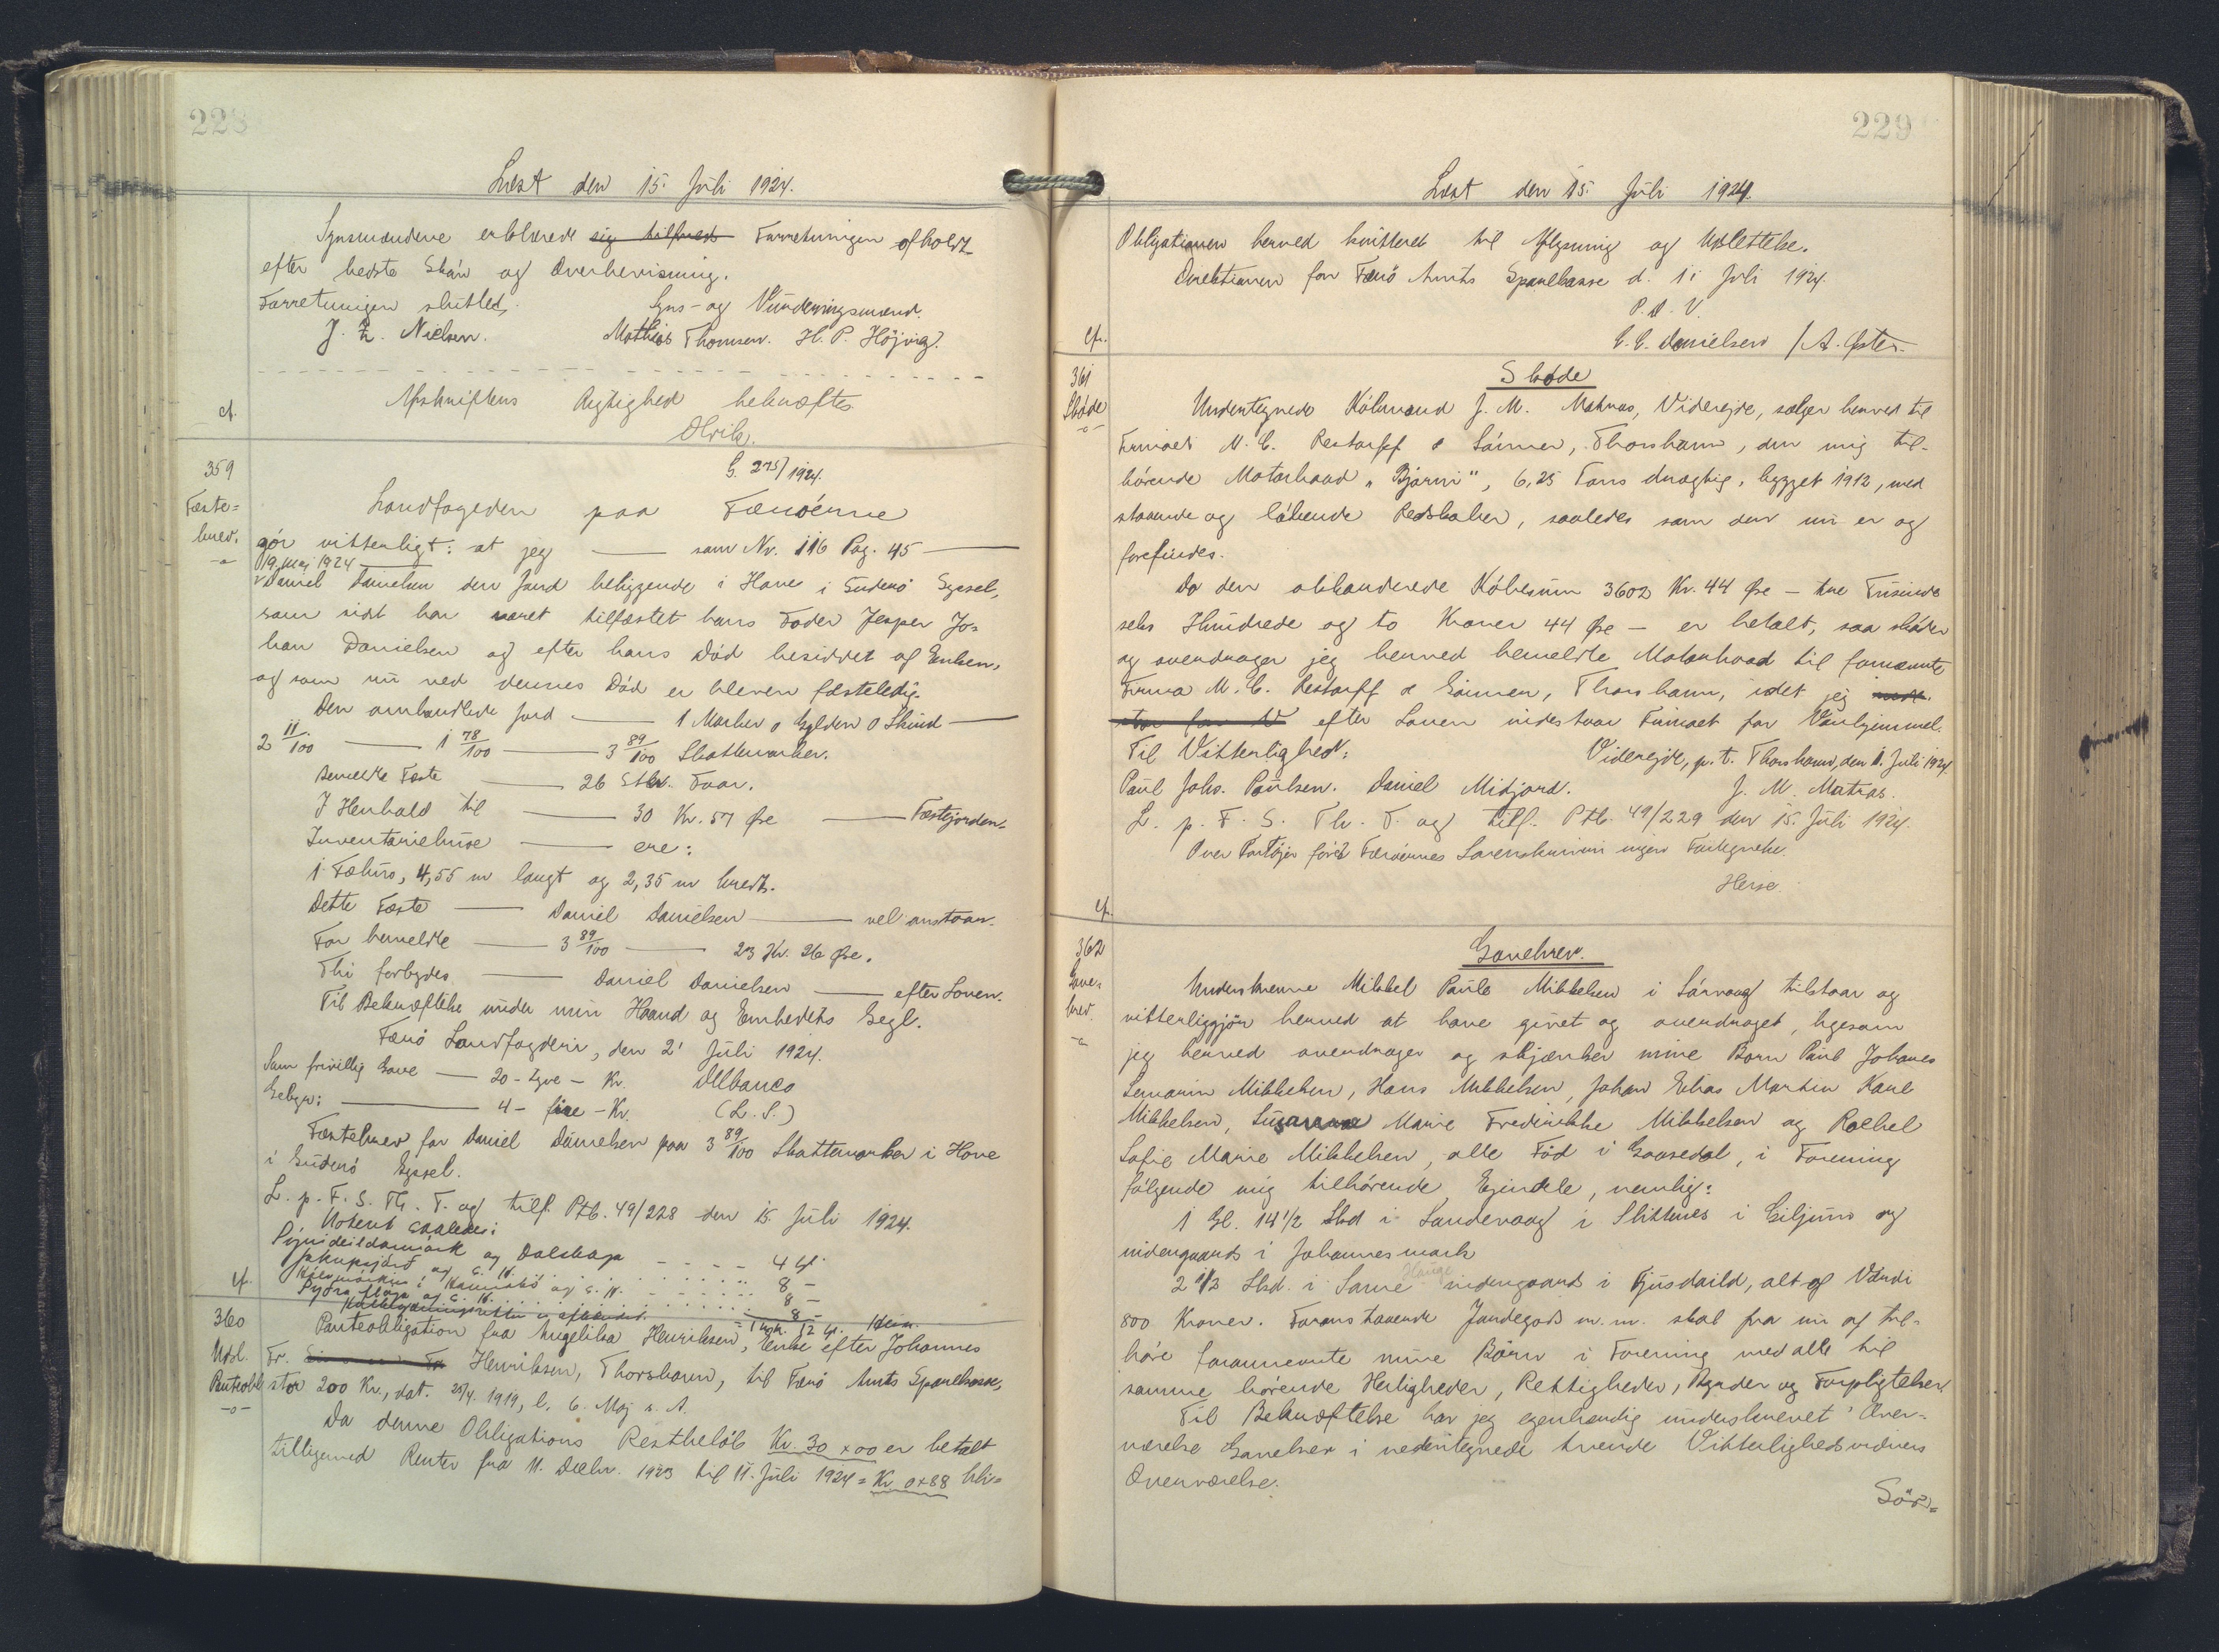 228
Læst den 15. Juli 1924.
Synsmændene erklærede sig tilfreds Forretningen afholdt
efter bedste Skøn og Overbevisning.
Forretningen sluttet.
Syns- og Vurderingsmænd.
J. Z. Nielsen. Mathias Thomsen. H. P. Højvig.
Afskriftens Rigtighed bekræftes
cf.
Olrik.
359
Fæste=
brev.
G. 275/1924.
Landfogeden paa Færöerne
gör vitterligt: at jeg — som Nr. 116 Pag. 45 —
19 Maj 1924
Daniel Danielsen den Jord beliggende i Hove i Suderö Syssel,
som sidst har været tilfæstet hans Fader Jesper Jo-
han Danielsen og efter hans Död besiddet af Enken,
og som nu ved dennes Död er bleven fæsteledig.
Den omhandlede Jord — 1 Marker 0 Gylden 0 Skind —
2 11/100 — 1 78/100 — 3 89/100 Skattemarker.
Bemeldte Fæste — 26 Stkr. Faar.
I Henhold til — 30 Kr. 57 Øre — Fæstejorden.
Inventariehuse — ere:
1 Fæhus, 4,55 m langt og 2,35 m bredt.
Dette Fæste — Daniel Danielsen — vel anstaar.
For bemeldte — 3 89/100 — 23 Kr. 26 Øre.
Thi forbydes — Daniel Danielsen — efter Loven.
Til Bekræftelse under min Haand og Embedets Segl.
Færö Landfogderi, den 2' Juli 1924.
Som frivillig Gave — 20 - tyve - Kr. Dllbanco
Gebyr: — 4 - fire - Kr. (L. S.)
Fæstebrev for Daniel Danielsen paa 3 89/100 Skattemarker i Hove
i Suderö Syssel.
L. p. F. S. Th. T. og tilf. Ptb. 49/228 den 15. Juli 1924.
Noteret saaledes:
og Dalskapa - - - - 4 Gl.
8 -
8 -
cf.
8 -
360
Udsl.
Panteobl.
-o-
Panteobligation fra Angelika Henriksen, Enke efter Johannes
Fr. Henriksen, Thorshavn, til Færö Amts Sparekasse,
stor 200 Kr., dat. 25/4. 1919, l. 6. Maj s. A.
Da denne Obligations Restbelöb Kr. 30 x 00 er betalt
tilligemed Renter fra 11. Decbr. 1923 til 11. Juli 1924 = Kr. 0 x 88 bli=
229
Læst den 15. Juli 1924.
Obligationen herved kvitteret til Aflysning og Udslettelse.
Direktionen for Færö Amts Sparekasse d. 11 Juli 1924.
P. D. V.
cfr.
C. C. Danielsen / A. Øster.
361
Skøde
-o-
Skøde
Undertegnede Köbmand J. M. Matras, Viderejde, sælger herved til
Firmaet M. C. Restorff & Sönner, Thorshavn, den mig til-
hörende Motorbaad "Bjarni", 6,25 Tons drægtig, bygget 1912, med
staaende og löbende Redskaber, saaledes som den nu er og
forefindes.
Da den akkorderede Köbesum 3602 Kr. 44 Øre — tre Tusinde
seks Hundrede og to Kroner 44 Øre — er betalt, saa skøder
og overdrager jeg herved bemeldte Motorbaad til fornævnte
Firma M. C. Restorff & Sönner, Thorshavn, idet jeg
efter Loven indestaar Firmaet for Vanhjemmel.
Til Vitterlighed: Viderejde, p. t. Thorshavn, den 11. Juli 1924.
Paul Johs. Poulsen. Daniel Midjord. J. M. Matras.
L. p. F. S. Th. T. og tilf. Ptb. 49/229 den 15. Juli 1924.
Over Fartøjer föret Færöernes Søvæsen ingen Fortegnelse.
Heise.
cf.
362
Gave=
brev.
Gavebrev.
Underskrevne Mikkel Paule Mikkelsen i Sörvaag tilstaar og
vitterliggjör herved at have givet og overdraget, ligesom
jeg herved overdrager og skjænker mine Børn Paul Johanes
Mikkelsen, Hans Mikkelsen, Johan Elias Martin Karl
Mikkelsen, Susanne Marie Frederikke Mikkelsen og Rachel
Sofie Marie Mikkelsen, alle Föd i Gaasedal, i Forening
fölgende mig tilhörende Ejendele, nemlig:
1 Gl. 14½ Skd i Sandevaag i Slittnes i Giljum og
udengaards i Johannesmark
2 1/3 Skd. i Samme Hauge indengaards i Fjusdaild, alt af Værdi
800 Kroner. Foranstaaende Jordegods m. m. skal fra nu af til-
höre forannævnte mine Börn i Forening med alle til
samme hörende Herligheder, Rettigheder, Byrder og Forpligtelser.
Til Bekræftelse har jeg egenhændig underskrevet Over-
værelse Gavebrev i nedentegnede tvende Vitterlighedsvidners
Overværelse.
Sör=